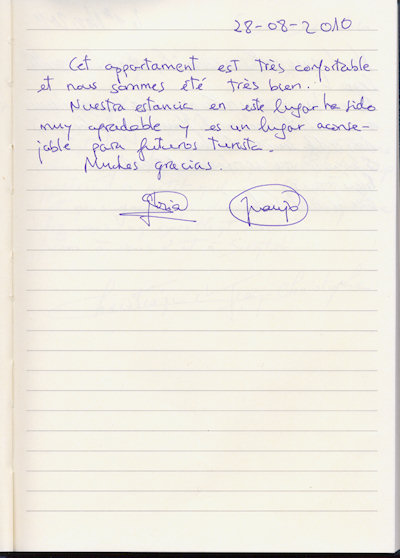 28-08-2010
Cet appartament est très confortable
et nous sommes été très bien.
Nuestra estancia en este lugar ha sido
muy agradable y es un lugar aconse-
jable para futuros turista.
Muchas gracias.
Gloria Juanjo